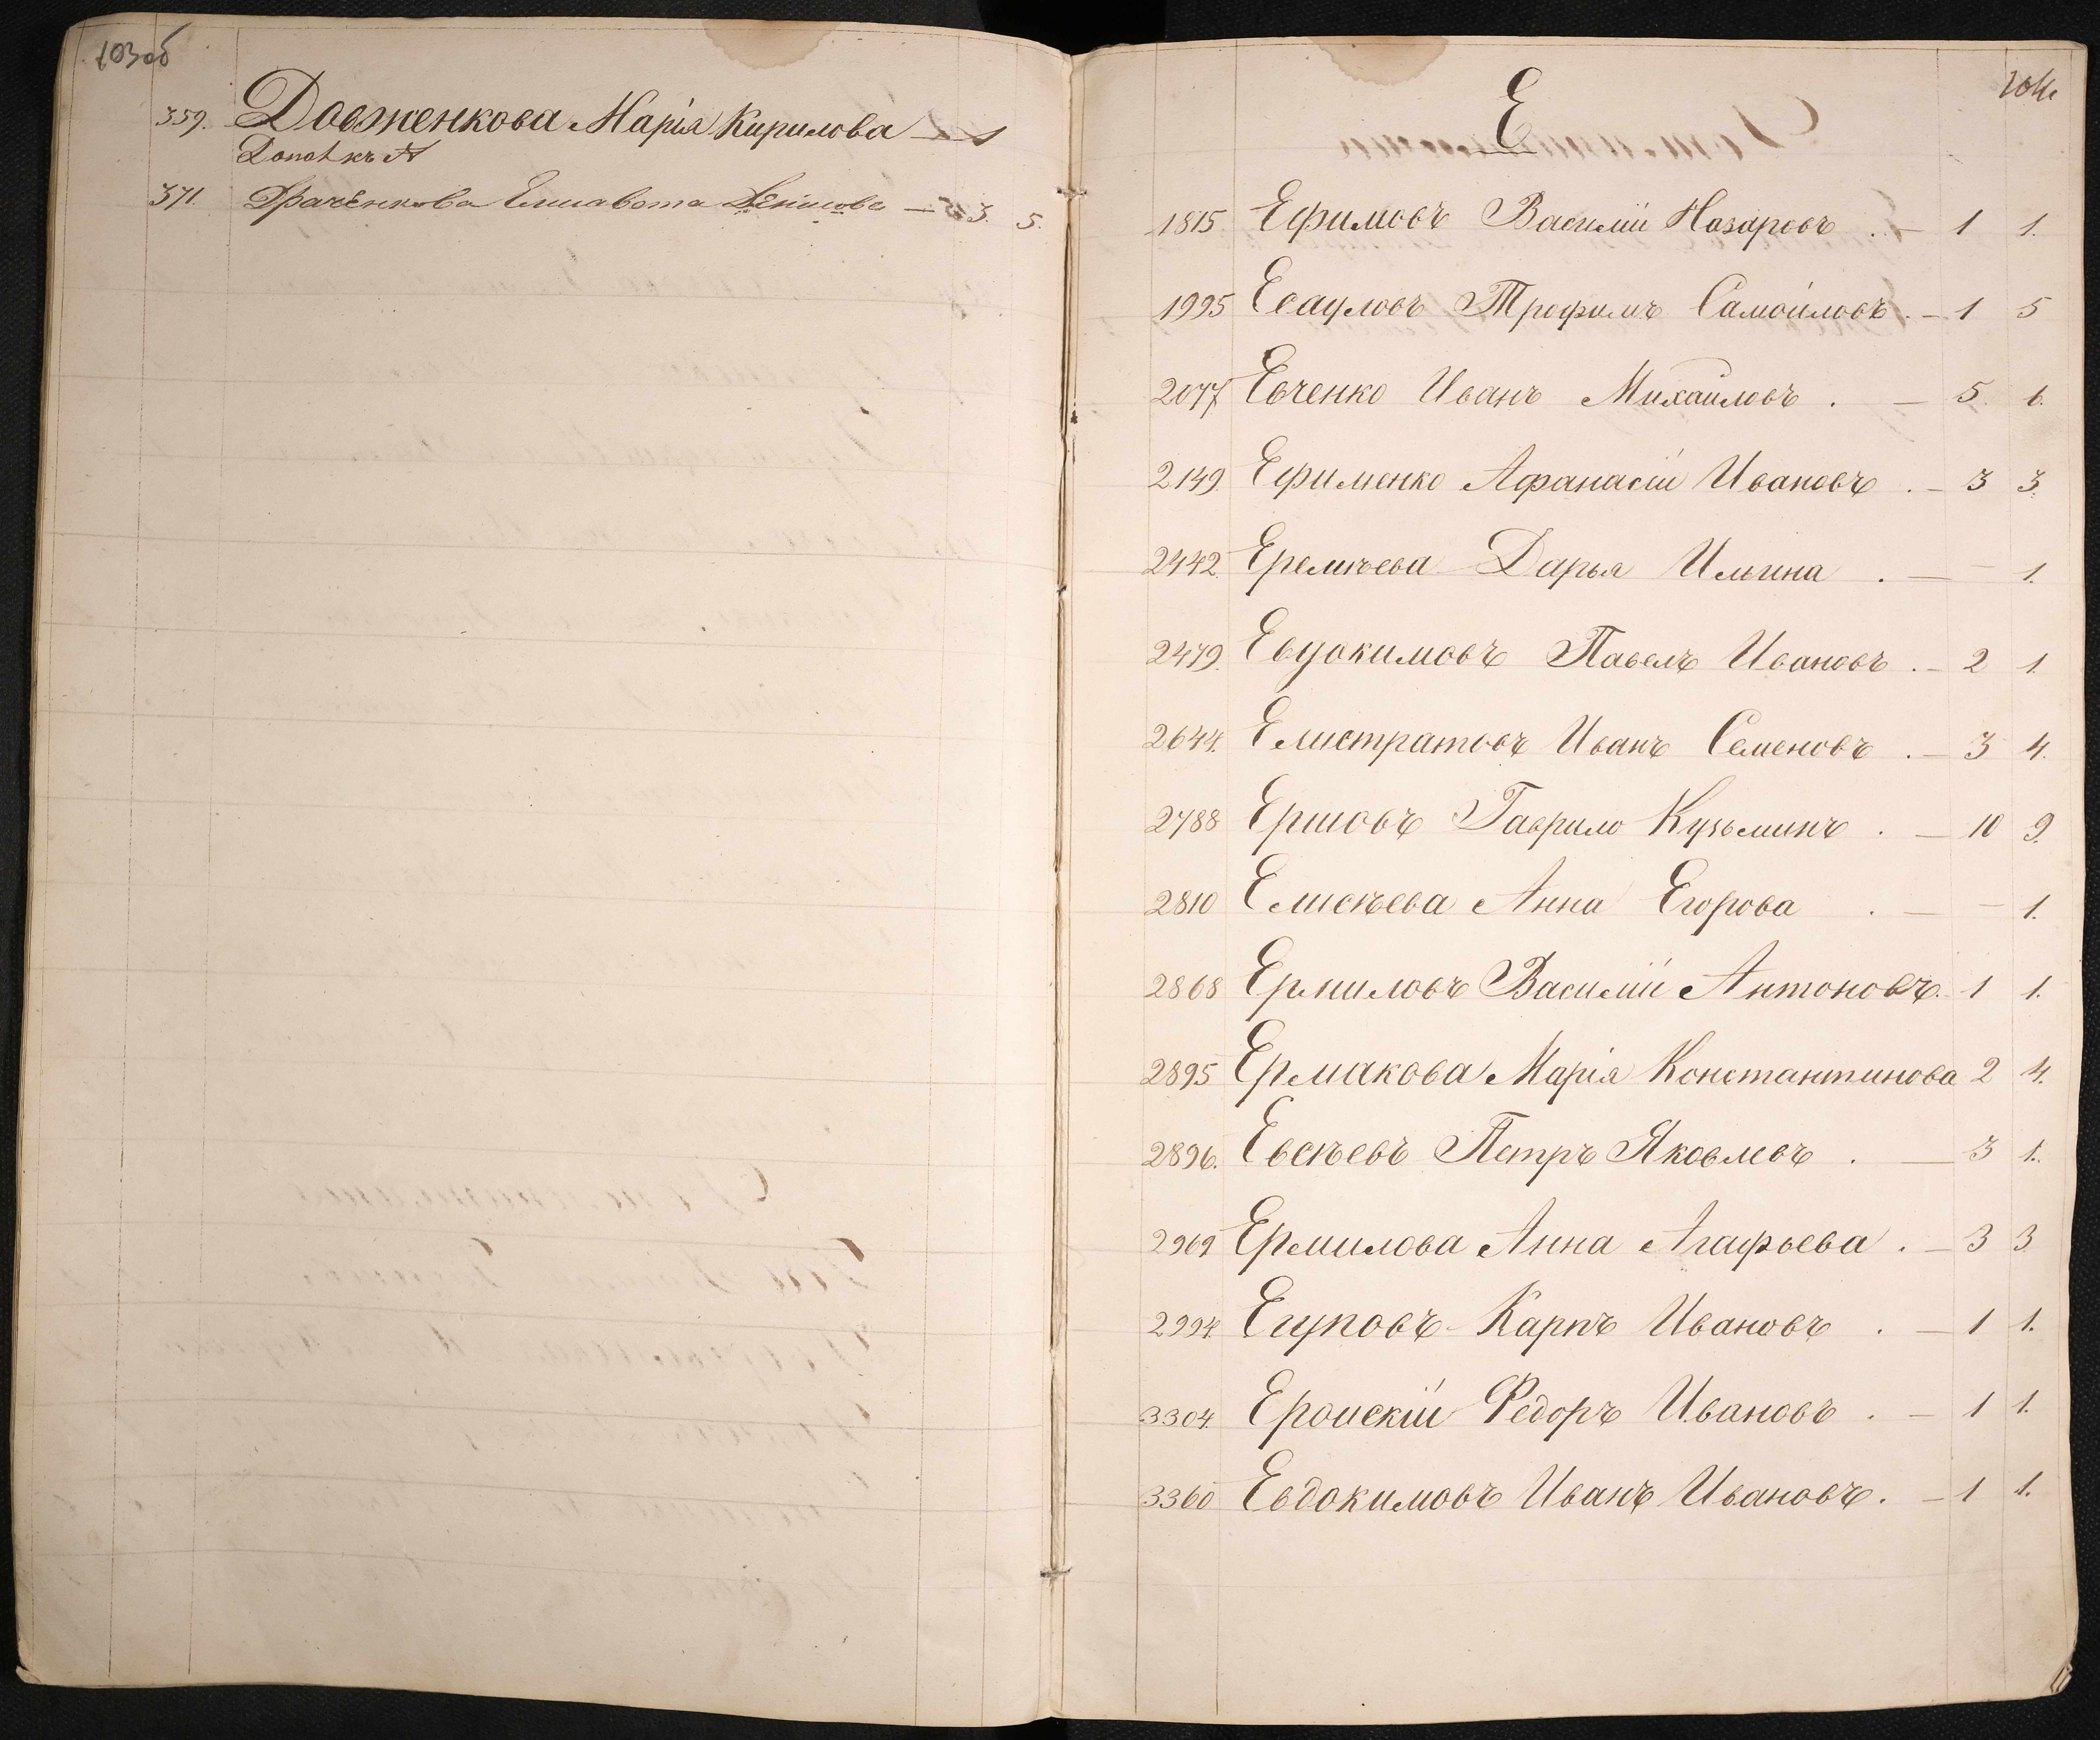 103об
359. Довженкова Марія Кирилова — 1
371. Драчёнкова Елисавета Денисова — 3. 5.
Е
1815 Ефимовъ Василій Назаровъ . — 1 1.
1995 Есауловъ Трофимъ Самойловъ . — 1 5
2077 Евченко Иванъ Михайловъ . — 5 6.
2149. Ефименко Афанасій Ивановъ . — 3 3.
2442. Еремѣева Дарья Ильина . — — 1.
2479. Евдокимовъ Павелъ Ивановъ . — 2 1.
2644. Елистратовъ Иванъ Семеновъ . — 3 4.
2788 Ершовъ Гаврило Кузьминъ . — 10 9.
2810 Елисѣева Анна Егорова . — — 1.
2868 Ермиловъ Василій Антоновъ. 1 1.
2895 Ермакова Марія Константинова 2 4.
2896. Евсѣевъ Петръ Яковлевъ . — 3 1.
2969 Ермилова Анна Агафьева . — 3 3.
2994. Егуповъ Карпъ Ивановъ . — 1 1.
3304 Федоръ Ивановъ . — 1 1.
3360 Евдокимовъ Иванъ Ивановъ. — 1 1.